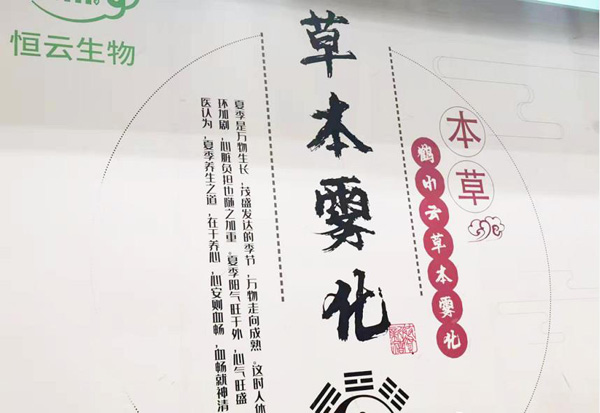 恒云生物
草本雾化
本草
鹤小云草本雾化
夏季是万物生长，茂盛发达的季节，万物走向成熟。这时人体
环加剧，心脏负担也随之加重。夏季阳气旺于外，心气旺盛
医认为，夏季养生之道，在于养心，心安则血畅，血畅就神清